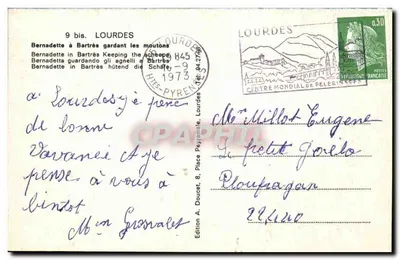 9 bis. LOURDES
Bernadette à Bartrès gardant les moutons
Bernadette in Bartrès Keeping the sheeps
Bernadette guardando gli agnelli a Bartrès
Bernadette in Bartrès hütend die Schafe
LOURDES
18H45
-9
1973
HTES-PYRENEES
LOURDES
CENTRE MONDIAL DE PELERINAGES
0,30
FRANÇAISE
à Lourdes je pense
de bonne
Vavance et je
pense à vous à
bintot
Mme
Edition A. Doucet, 8, Place Peyramale, Lourdes
Mme Millot Eugene
le petit
Ploufragan
22440
CPAPHIL